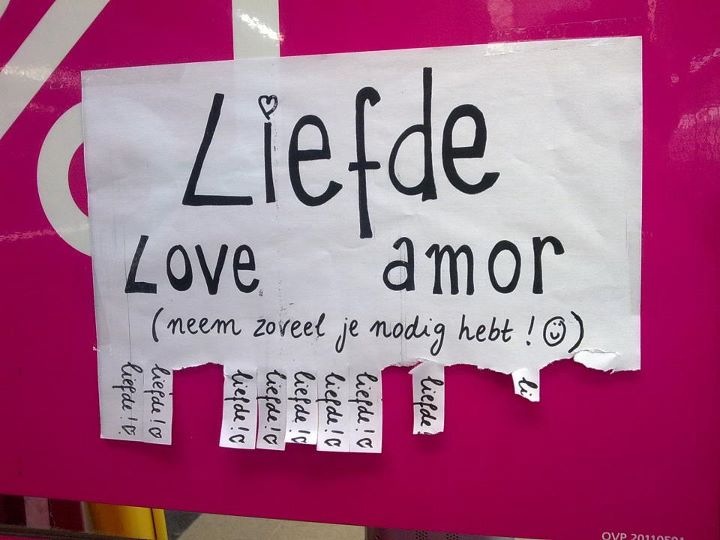 Liefde
Love amor
(neem zoveel je nodig hebt! ☺)
liefde! ♡
liefde! ♡
liefde! ♡
liefde! ♡
liefde! ♡
liefde! ♡
liefde! ♡
liefde!
li